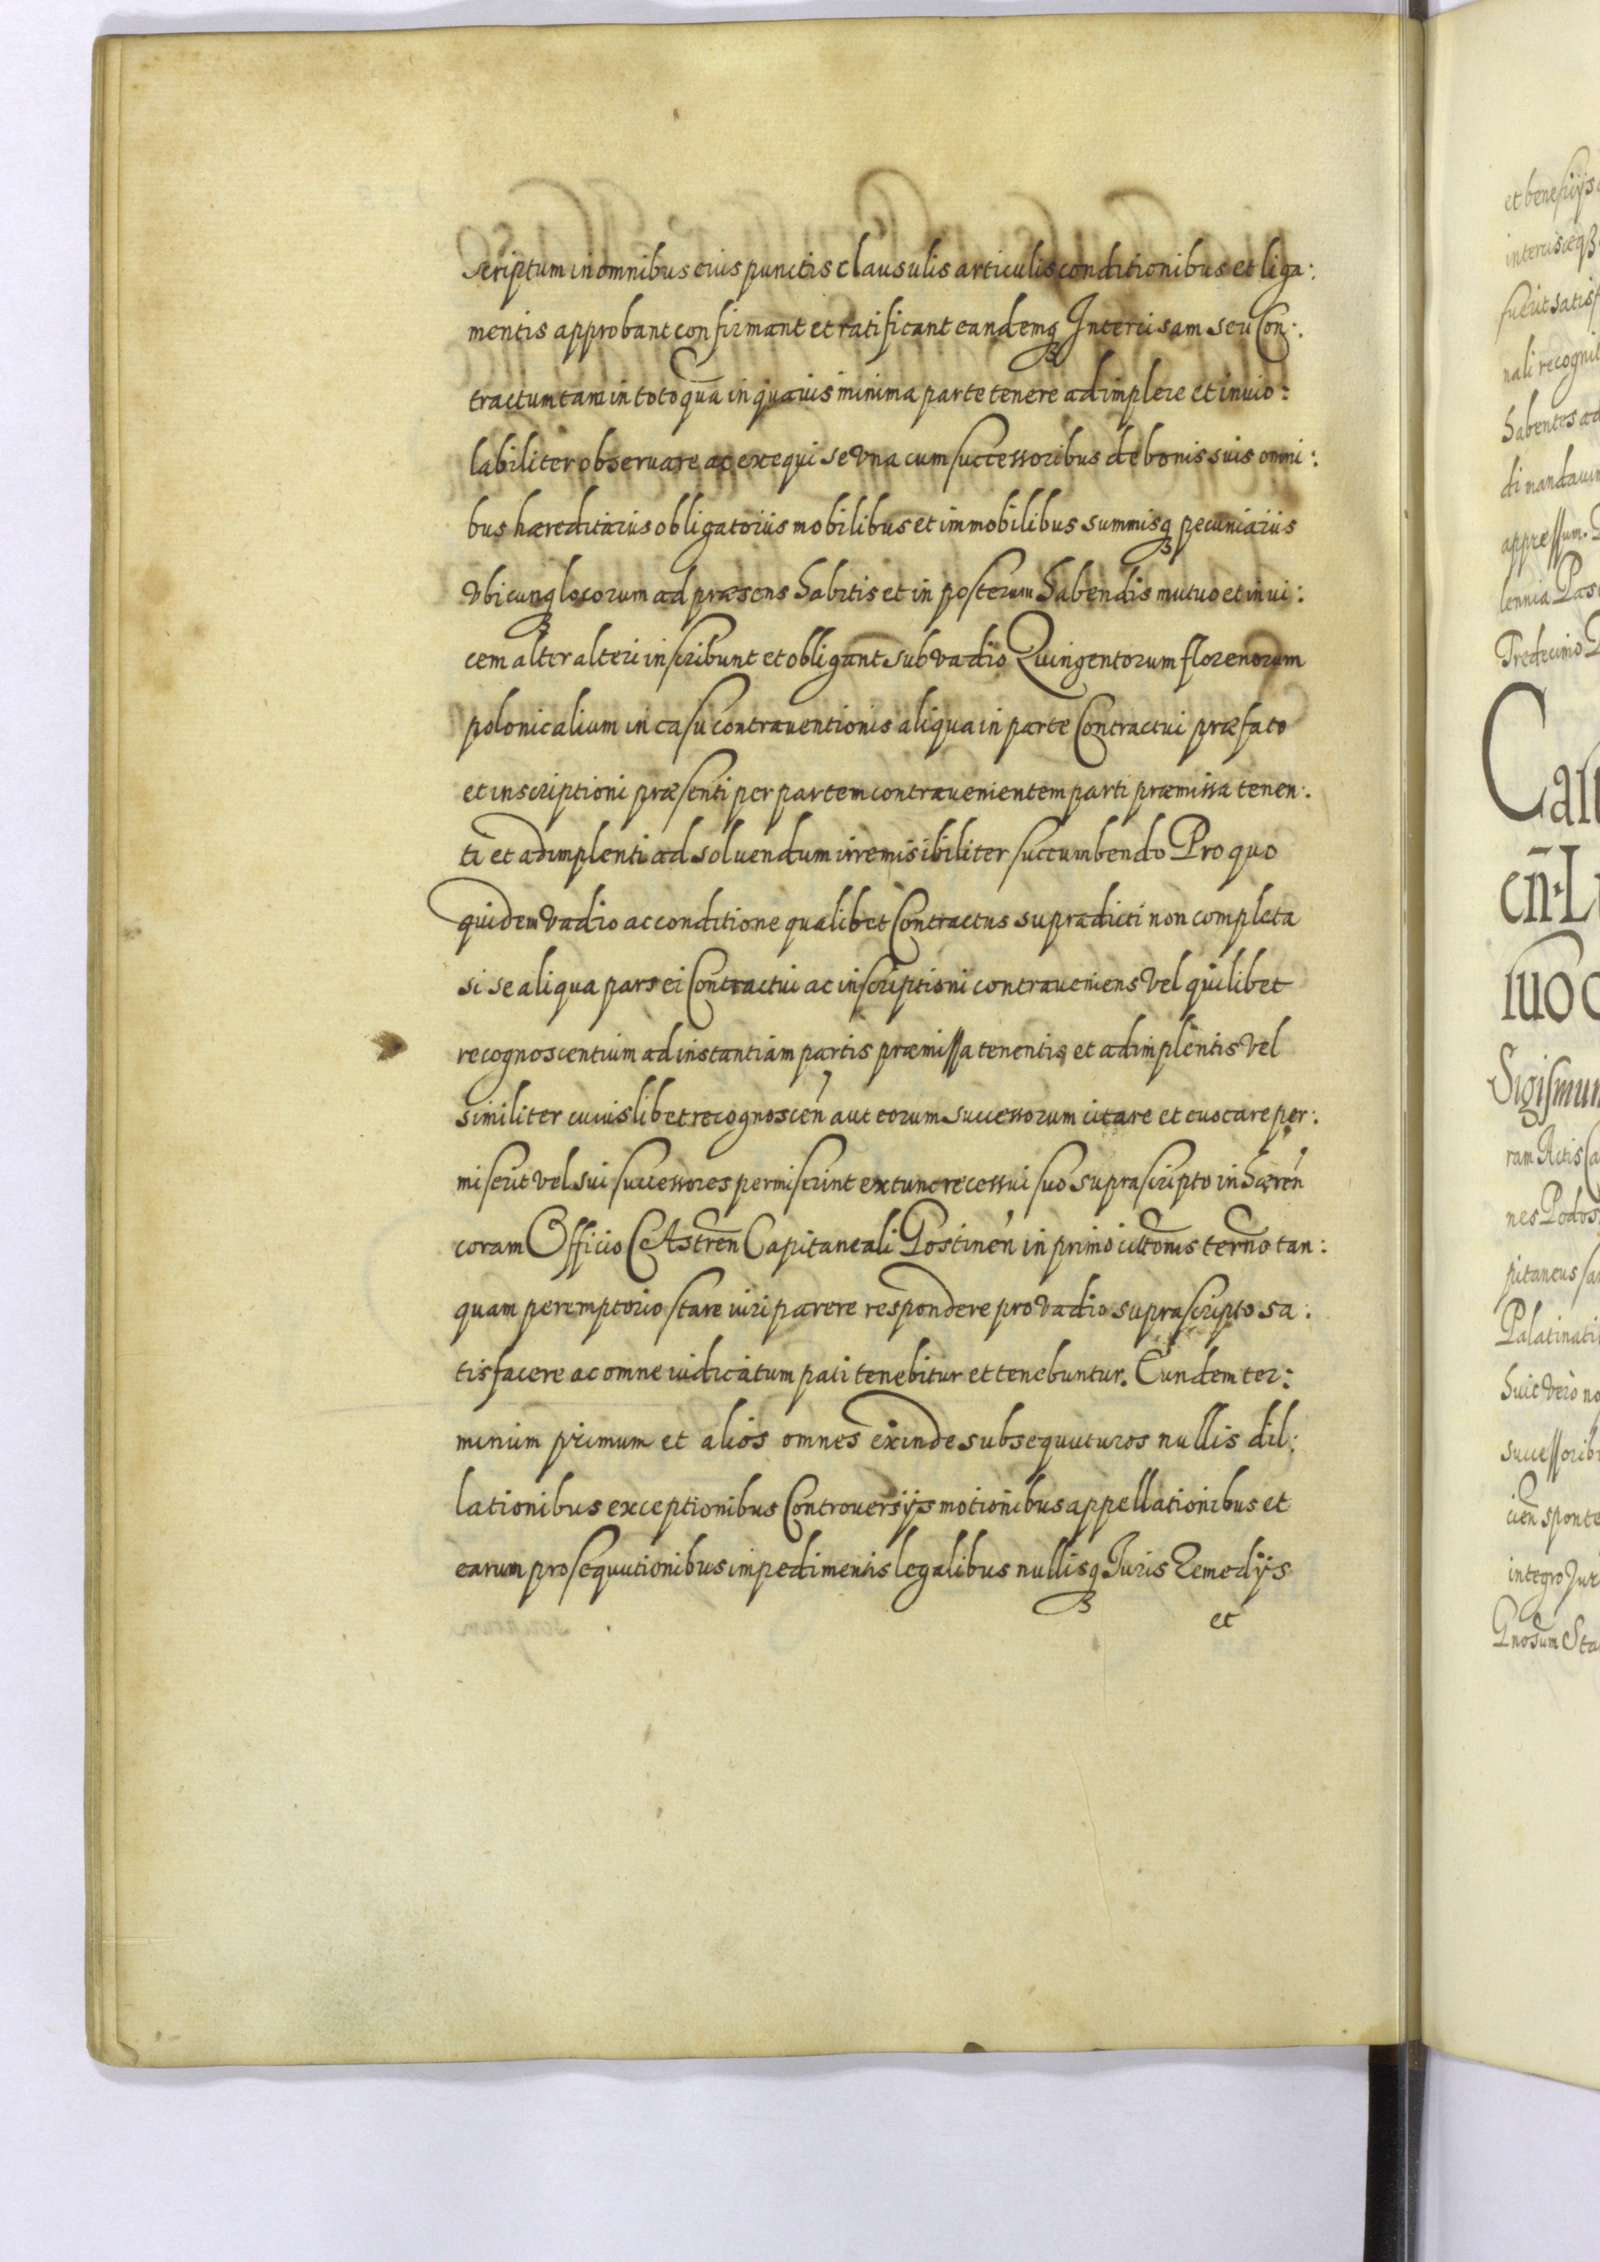 scriptum in omnibus eius punctis clausulis articulis conditionibus et liga:
mentis approbant confirmant et ratificant eandemq₃ Intercisam seu Con:
tractum tam in toto quā in quavis minima parte tenere adimplere et invio:
labiliter observare ac exequi se Vna cum successoribus de bonis suis omni:
bus hæreditariis obligatoriis mobilibus et immobilibus summisq₃ pecuniariis
Vbicunq₃ locorum ad præsens habitis et in posterum habendis mutuo et invi:
cem alter alteri inscribunt et obligant sub vadio Quingentorum florenorum
polonicalium in casu contraventionis aliqua in parte Contractui præfato
et inscriptioni præsenti per partem contravenientem parti præmissa tenen:
ti et adimplenti ad solvendum irremisibiliter succumbendo Pro quo
quidem Vadio ac conditione qualibet Contractus supradicti non completa
si se aliqua pars ei Contractui ac inscriptioni contraveniens Vel quilibet
recognoscentium ad instantiam partis præmissa tenentis et adimplentis Vel
similiter cuiuslibet recognoscen̄ aut eorum successorum citare et evocare per:
miserit vel sui successores permiserint extunc recessui suo suprascripto inhæren̄
coram Officio CAstren̄ Capitaneali Gostinen̄ in primo cittonis termo tan:
quam peremptorio stare iuri parere respondere pro Vadio suprascripto sa:
tisfacere ac omne iudicatum pati tenebitur et tenebuntur. Eundem ter:
minum primum et alios omnes exinde subsequuturos nullis dil:
lationibus exceptionibus Controversijs motionibus appellationibus et
earum prosequutionibus impedimentis legalibus nullisq₃ Iuris Remedijs
et
et benefijs
intercisæq₃
fuerit satisf
nali recognit
habentes ad
di mandavim
appressum.
lennia Pasc
Tredecimo
Call
en̄ L
iuo
Sigismun
ram Actis Ca
nes Podos
pitaneus
Palatinati
huic Vero no
successorib
cien̄ sponte
integro Jur
Gnosum Sta